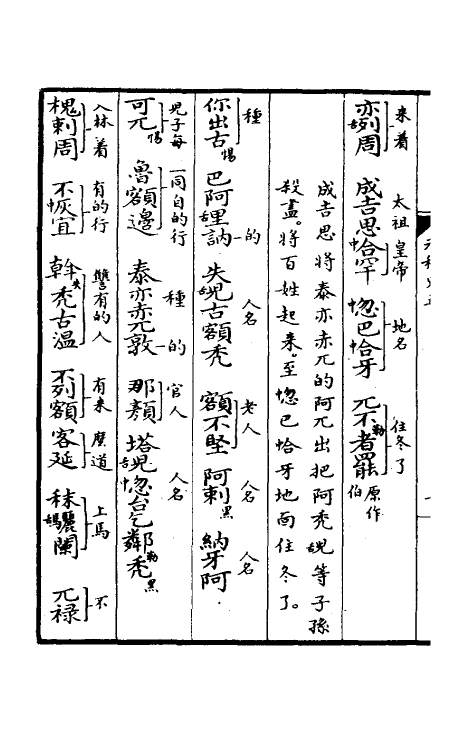 来着 太祖皇帝 地名 住冬了
亦舌列周 成吉思中合罕 中忽巴中合牙 兀勒不者罷 原作伯
成吉思將泰亦赤兀的阿兀出把阿禿舌児等子孫
殺盡。將百姓起来。至忽巴合牙地面住冬了。
種 的 人名 老人 人名 人名
你出古惕 巴阿舌里訥 失舌児古額禿 額不堅 阿剌黑 納牙阿
児子每 一同自的行 種 的 官人 人名
可兀惕 魯額邊 泰亦赤兀敦 那顏 塔舌児中忽台乞鄰勒禿黑
入林着 有的行 讐有的人 有来 麼道 上馬 不
槐剌周 不中恢宜 斡失禿古溫 不列額 客延 秣舌驪闌 兀禄